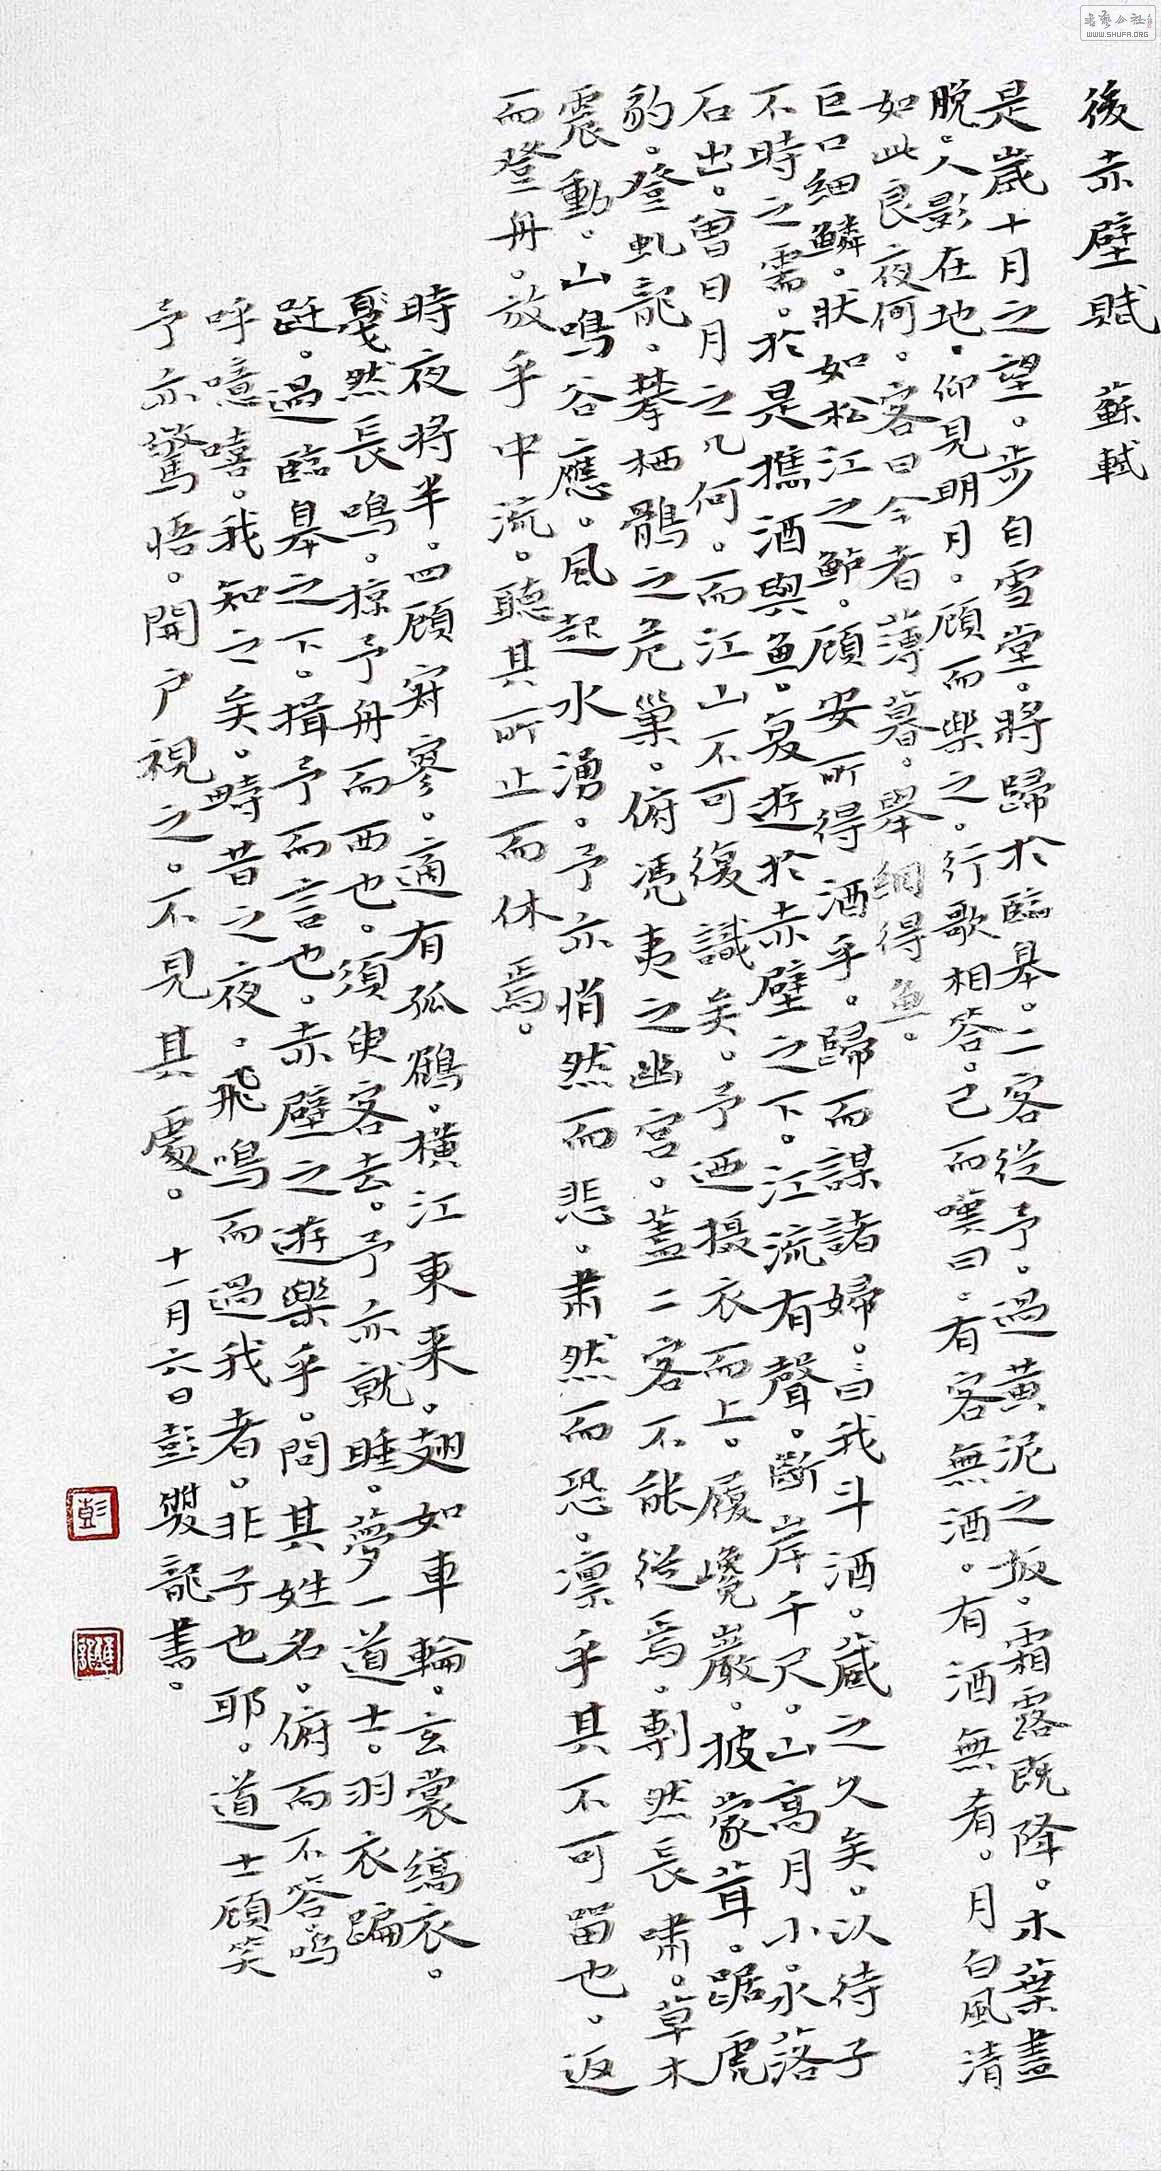 後赤壁賦 蘇軾
是歲十月之望。步自雪堂。將歸於臨皋。二客從予。過黄泥之坂。霜露既降。木葉盡
脱。人影在地。仰見明月。顧而樂之。行歌相答。已而嘆曰。有客無酒。有酒無肴。月白風清
如此良夜何。客曰今者薄暮。舉網得魚。
巨口細鱗。狀如松江之鲈。顧安所得酒乎。歸而謀諸婦。々曰我斗酒。藏之久矣。以待子
不時之需。於是攜酒與魚。复遊於赤壁之下。江流有聲。斷岸千尺。山高月小。水落
石出。曾日月之几何。而江山不可復識矣。予迺攝衣而上。履巉巖。披蒙茸。踞虎
豹。登虬龍。攀栖鶻之危巢。俯馮夷之幽宫。蓋二客不能從焉。劃然長嘯。草木
震動。山鳴谷應。風起水湧。予亦悄然而悲。肅然而恐。凛乎其不可留也。返
而登舟。放乎中流。聽其所止而休焉。
時夜將半。四顧寂寥。適有孤鶴。横江東来。翅如車輪。玄裳縞衣。
戛然長鳴。掠予舟而西也。須臾客去。予亦就睡。夢一道士。羽衣蹁
躚。過臨皋之下。揖予而言也。赤壁之遊樂乎。問其姓名。俯而不答。嗚
呼噫嘻。我知之矣。疇昔之夜。飛鳴而過我者。非子也耶。道士顧笑
予亦驚悟。開户視之。不見其處。十一月六日彭雙龍書。
彭
雙龍
書藝公社
WWW.SHUFA.ORG